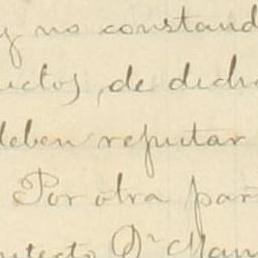 y no constand
uctos, de dicha
deben reputar
Por otra par
uitecto Dn Man